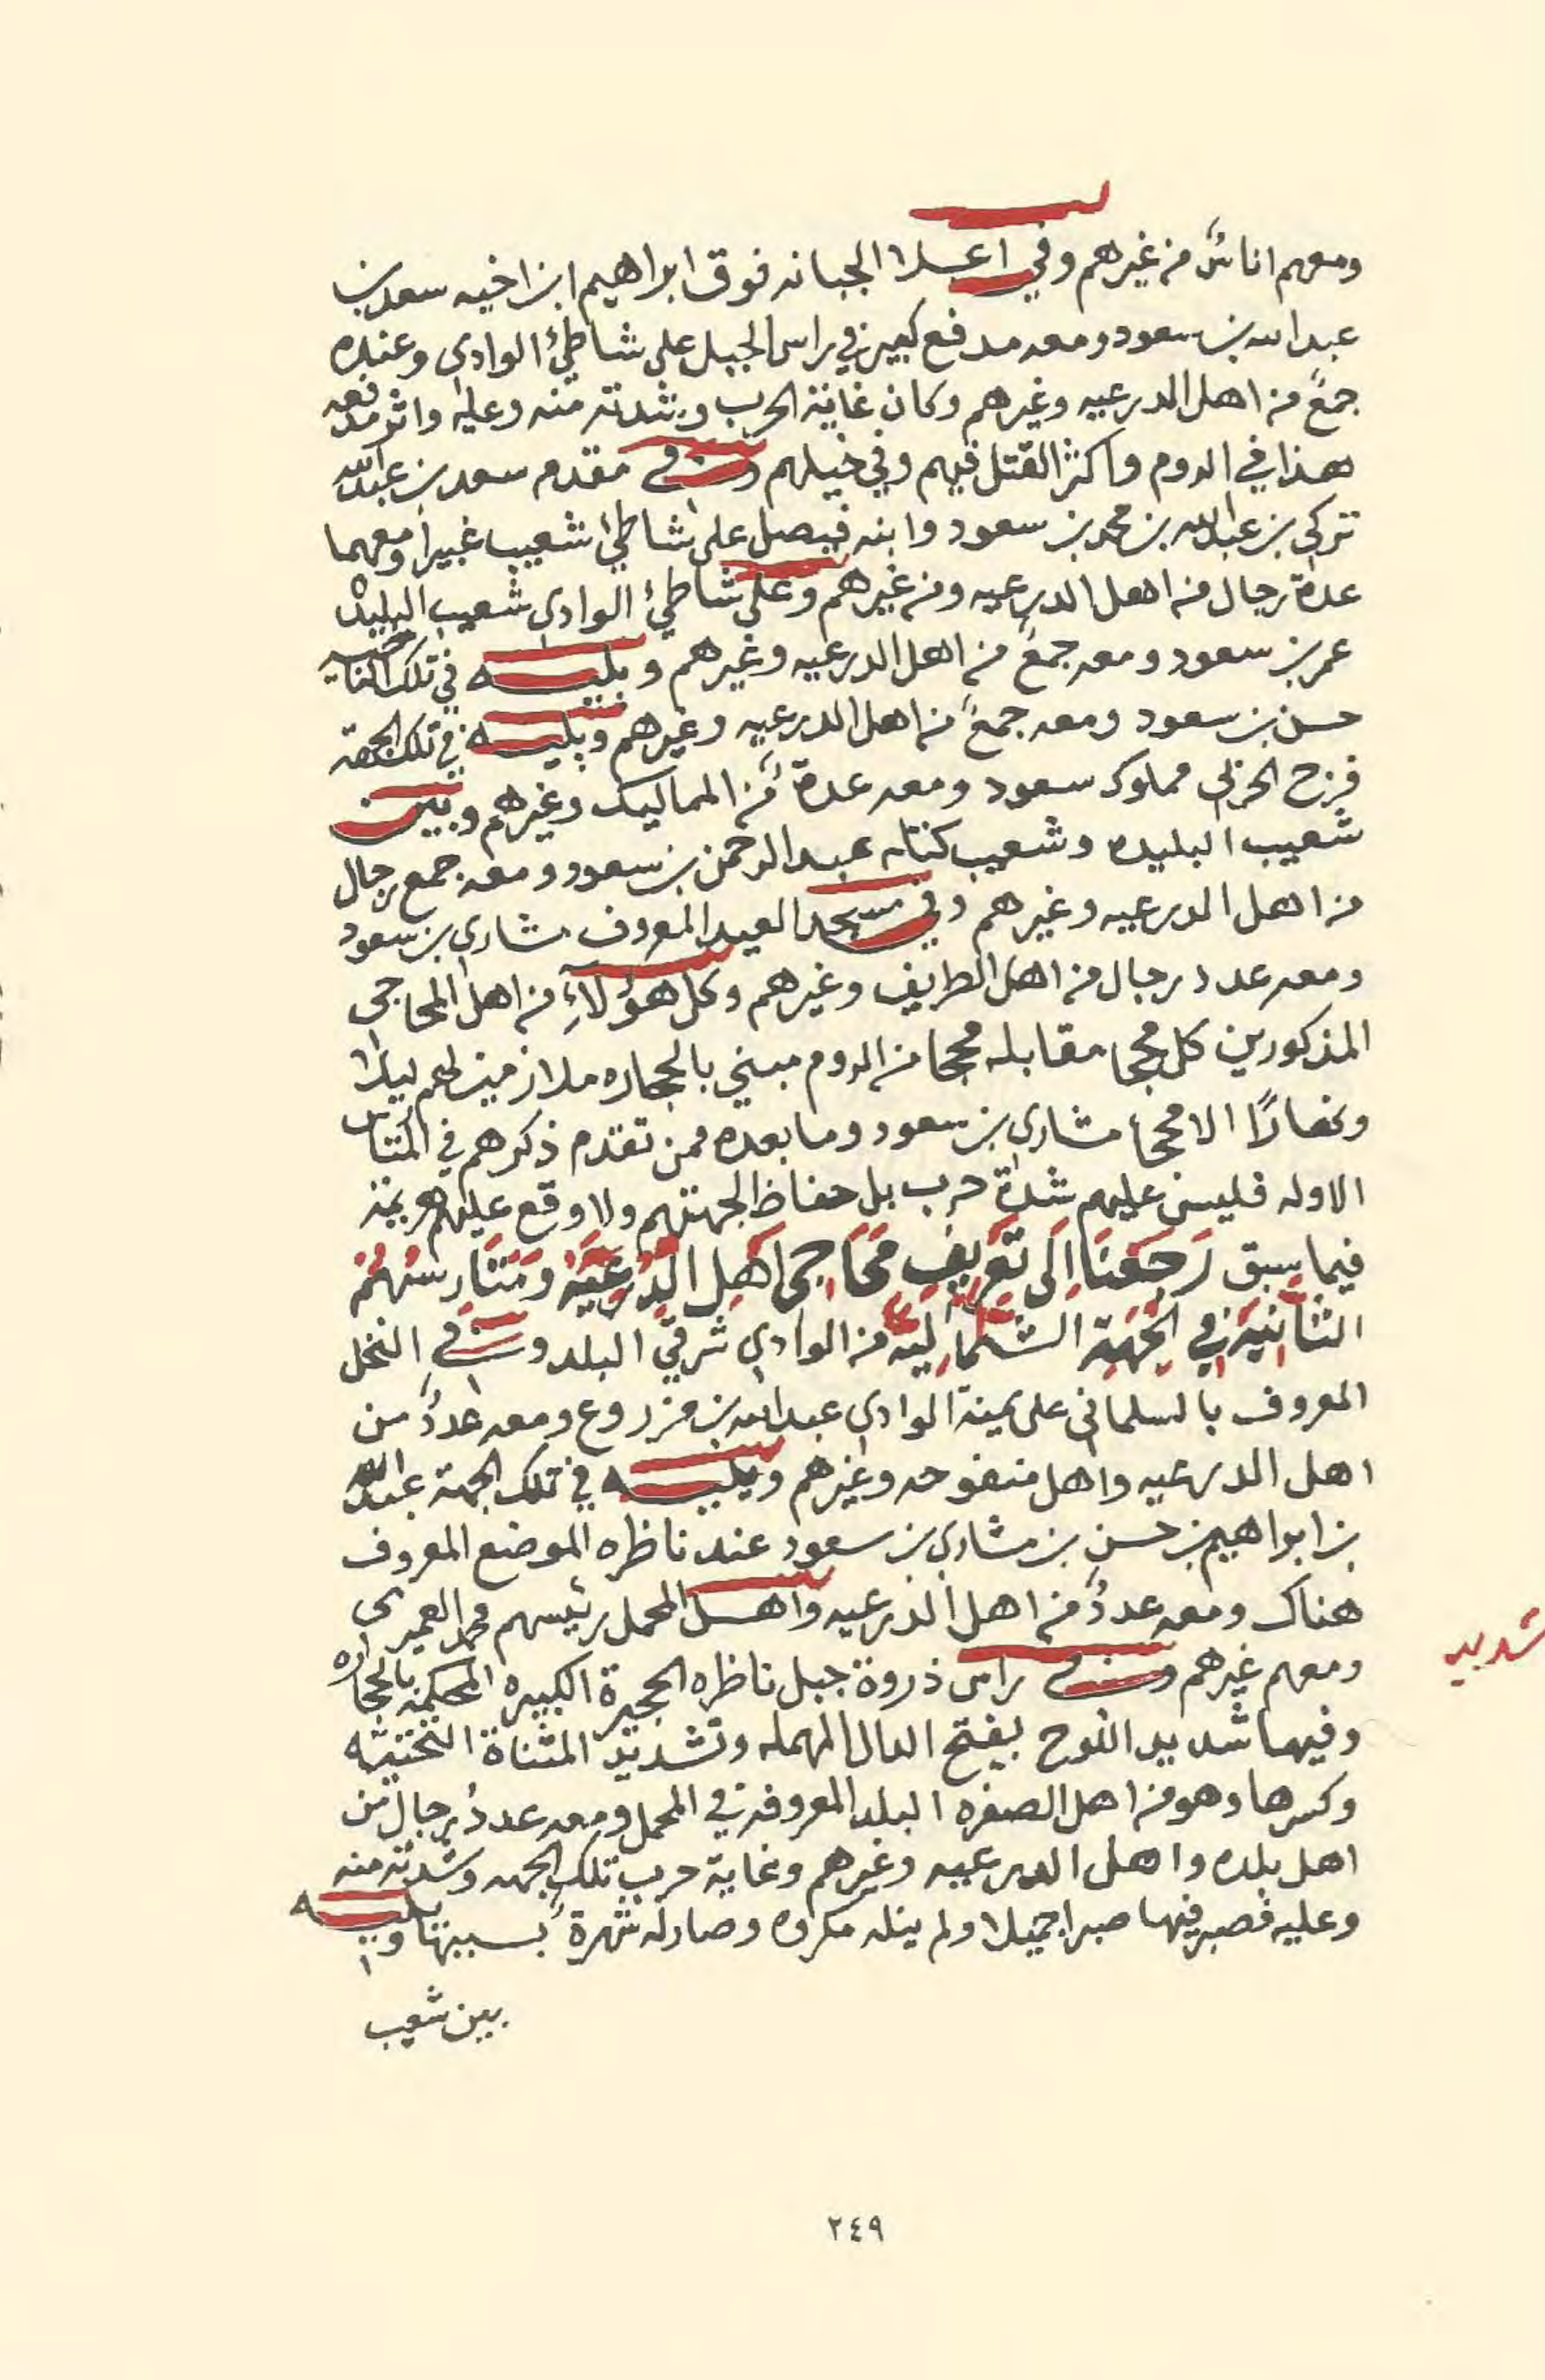 ومعهم اناسٌ من غيرهم وفي اعلا الجبانه فوق ابراهيم ابن اخيه سعد بن
عبد الله بن سعود ومعه مدفع كبير في راس الجبل على شاطئ الوادي وعنده
جمعٌ من اهل الدرعيه وغيرهم وكان غاية الحرب وشدته منه وعليه واثر مدفعه
هذا في الروم واكثر القتل فيهم وفي خيلهم وفي مقدم سعد بن عبدالله
تركي بن عبدالله بن محمد بن سعود وابنه فيصل على شاطئ شعيب غبيرا ومعهما
عدة رجال من اهل الدرعيه ومن غيرهم وعلى شاطئ الوادي شعيب البليده
عمر بن سعود ومعه جمعٌ من اهل الدرعيه وغيرهم ويليه في تلك الناحيه
حسن بن سعود ومعه جمعٌ من اهل الدرعيه وغيرهم ويليه في تلك الجهة
فرج الحربي مملوك سعود ومعه عدةٌ من المماليك وغيرهم وبين
شعيب البليده وشعيب كتله عبد الرحمن بن سعود ومعه جمع رجال
من اهل الدرعيه وغيرهم وفي مسجد العيد المعروف مشاري بن سعود
ومعه عدد رجال من اهل الطريف وغيرهم وكل هؤلآءِ من اهل المحاجي
المذكورين كل محجا مقابله محجا من الروم مبني بالحجاره ملازمين لهم ليلا
ونهارًا الا محجا مشاري بن سعود وما بعده ممن تقدم ذكرهم في المتارس
الاوله فليس عليهم شدة حرب بل حفاظ لجهتهم ولا وقع عليهم هزيمة
فيما سبق رَجَعْنَا اِلَى تَعْرِيفِ مَحَاجِى اَهْلِ الدِّرْعِيَّهْ وَمَتَارِسُهُمْ
الثَانيَه فِي الجِهَةِ الشَمَاليّه من الوادي شرقي البلد وفي النخل
المعروف بالسلماني على يمنة الوادي عبدالله بن مزروع ومعه عددٌ من
اهل الدرعيه واهل منفوحه وغيرهم ويليه في تلك الجهة عبدالله
بن ابراهيم بن حسن بن مشاري بن سعود عند ناظره الموضع المعروف
هناك ومعه عددٌ من اهل الدرعيه واهل المحمل رئيسهم محمد العميري
ومعهم غيرهم وفي راس ذروة جبل ناظره الحجيرة الكبيره المحكمة بالحجاره
وفيها شديد اللوح بفتح الدال المهمله وتشديد المثناة التحتيّه
وكسرها وهو من اهل الصفره البلد المعروفه في المحمل ومعه عددُ رجالٍ من
اهل بلده واهل الدرعيه وغيرهم وغاية حرب تلك الجهه وشدته منه
وعليه فصبر فيها صبرا جميلا ولم ينله مكروه وصار له شهرةٌ بسببها ويليه
بين شعيب
شديد
٢٤٩